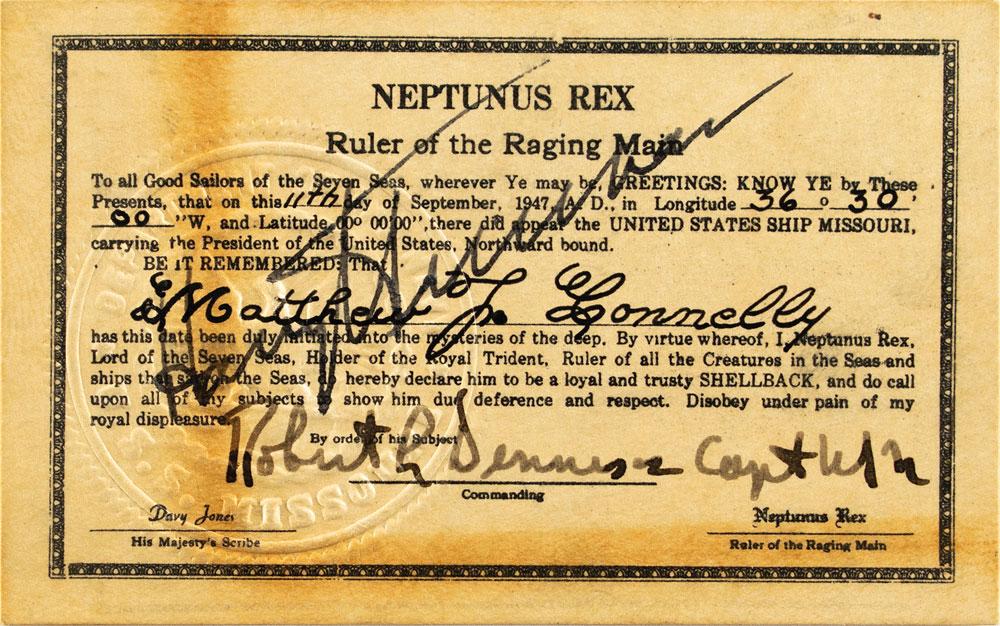 NEPTUNUS REX
Ruler of the Raging Main
To all Good Sailors of the Seven Seas, wherever Ye may be, GREETINGS: KNOW YE by These
Presents, that on this 11th day of September, 1947, A. D., in Longitude 36 o 30'
00 "W, and Latitude 00o 00'00", there did appear the UNITED STATES SHIP MISSOURI,
carrying the President of the United States, Northward bound.
BE IT REMEMBERED: That
Matthew J. Connelly
has this date been duly initiated into the mysteries of the deep. By virtue whereof, I, Neptunus Rex,
Lord of the Seven Seas, Holder of the Royal Trident, Ruler of all the Creatures in the Seas and
ships that sail on the Seas, do hereby declare him to be a loyal and trusty SHELLBACK, and do call
upon all of my subjects to show him due deference and respect. Disobey under pain of my
royal displeasure.
Harry Truman
By order of his Subject
Robert L Dennison Capt USN
Commanding
Davy Jones
His Majesty's Scribe
Neptunus Rex
Ruler of the Raging Main
U.S.S. MISSOURI